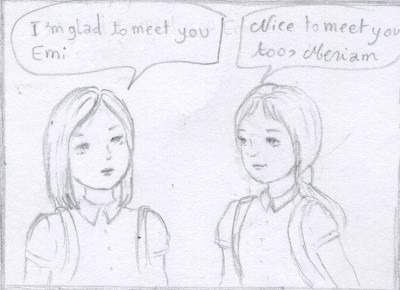 I'm glad to meet you
Emi
Nice to meet you
too, Meriam